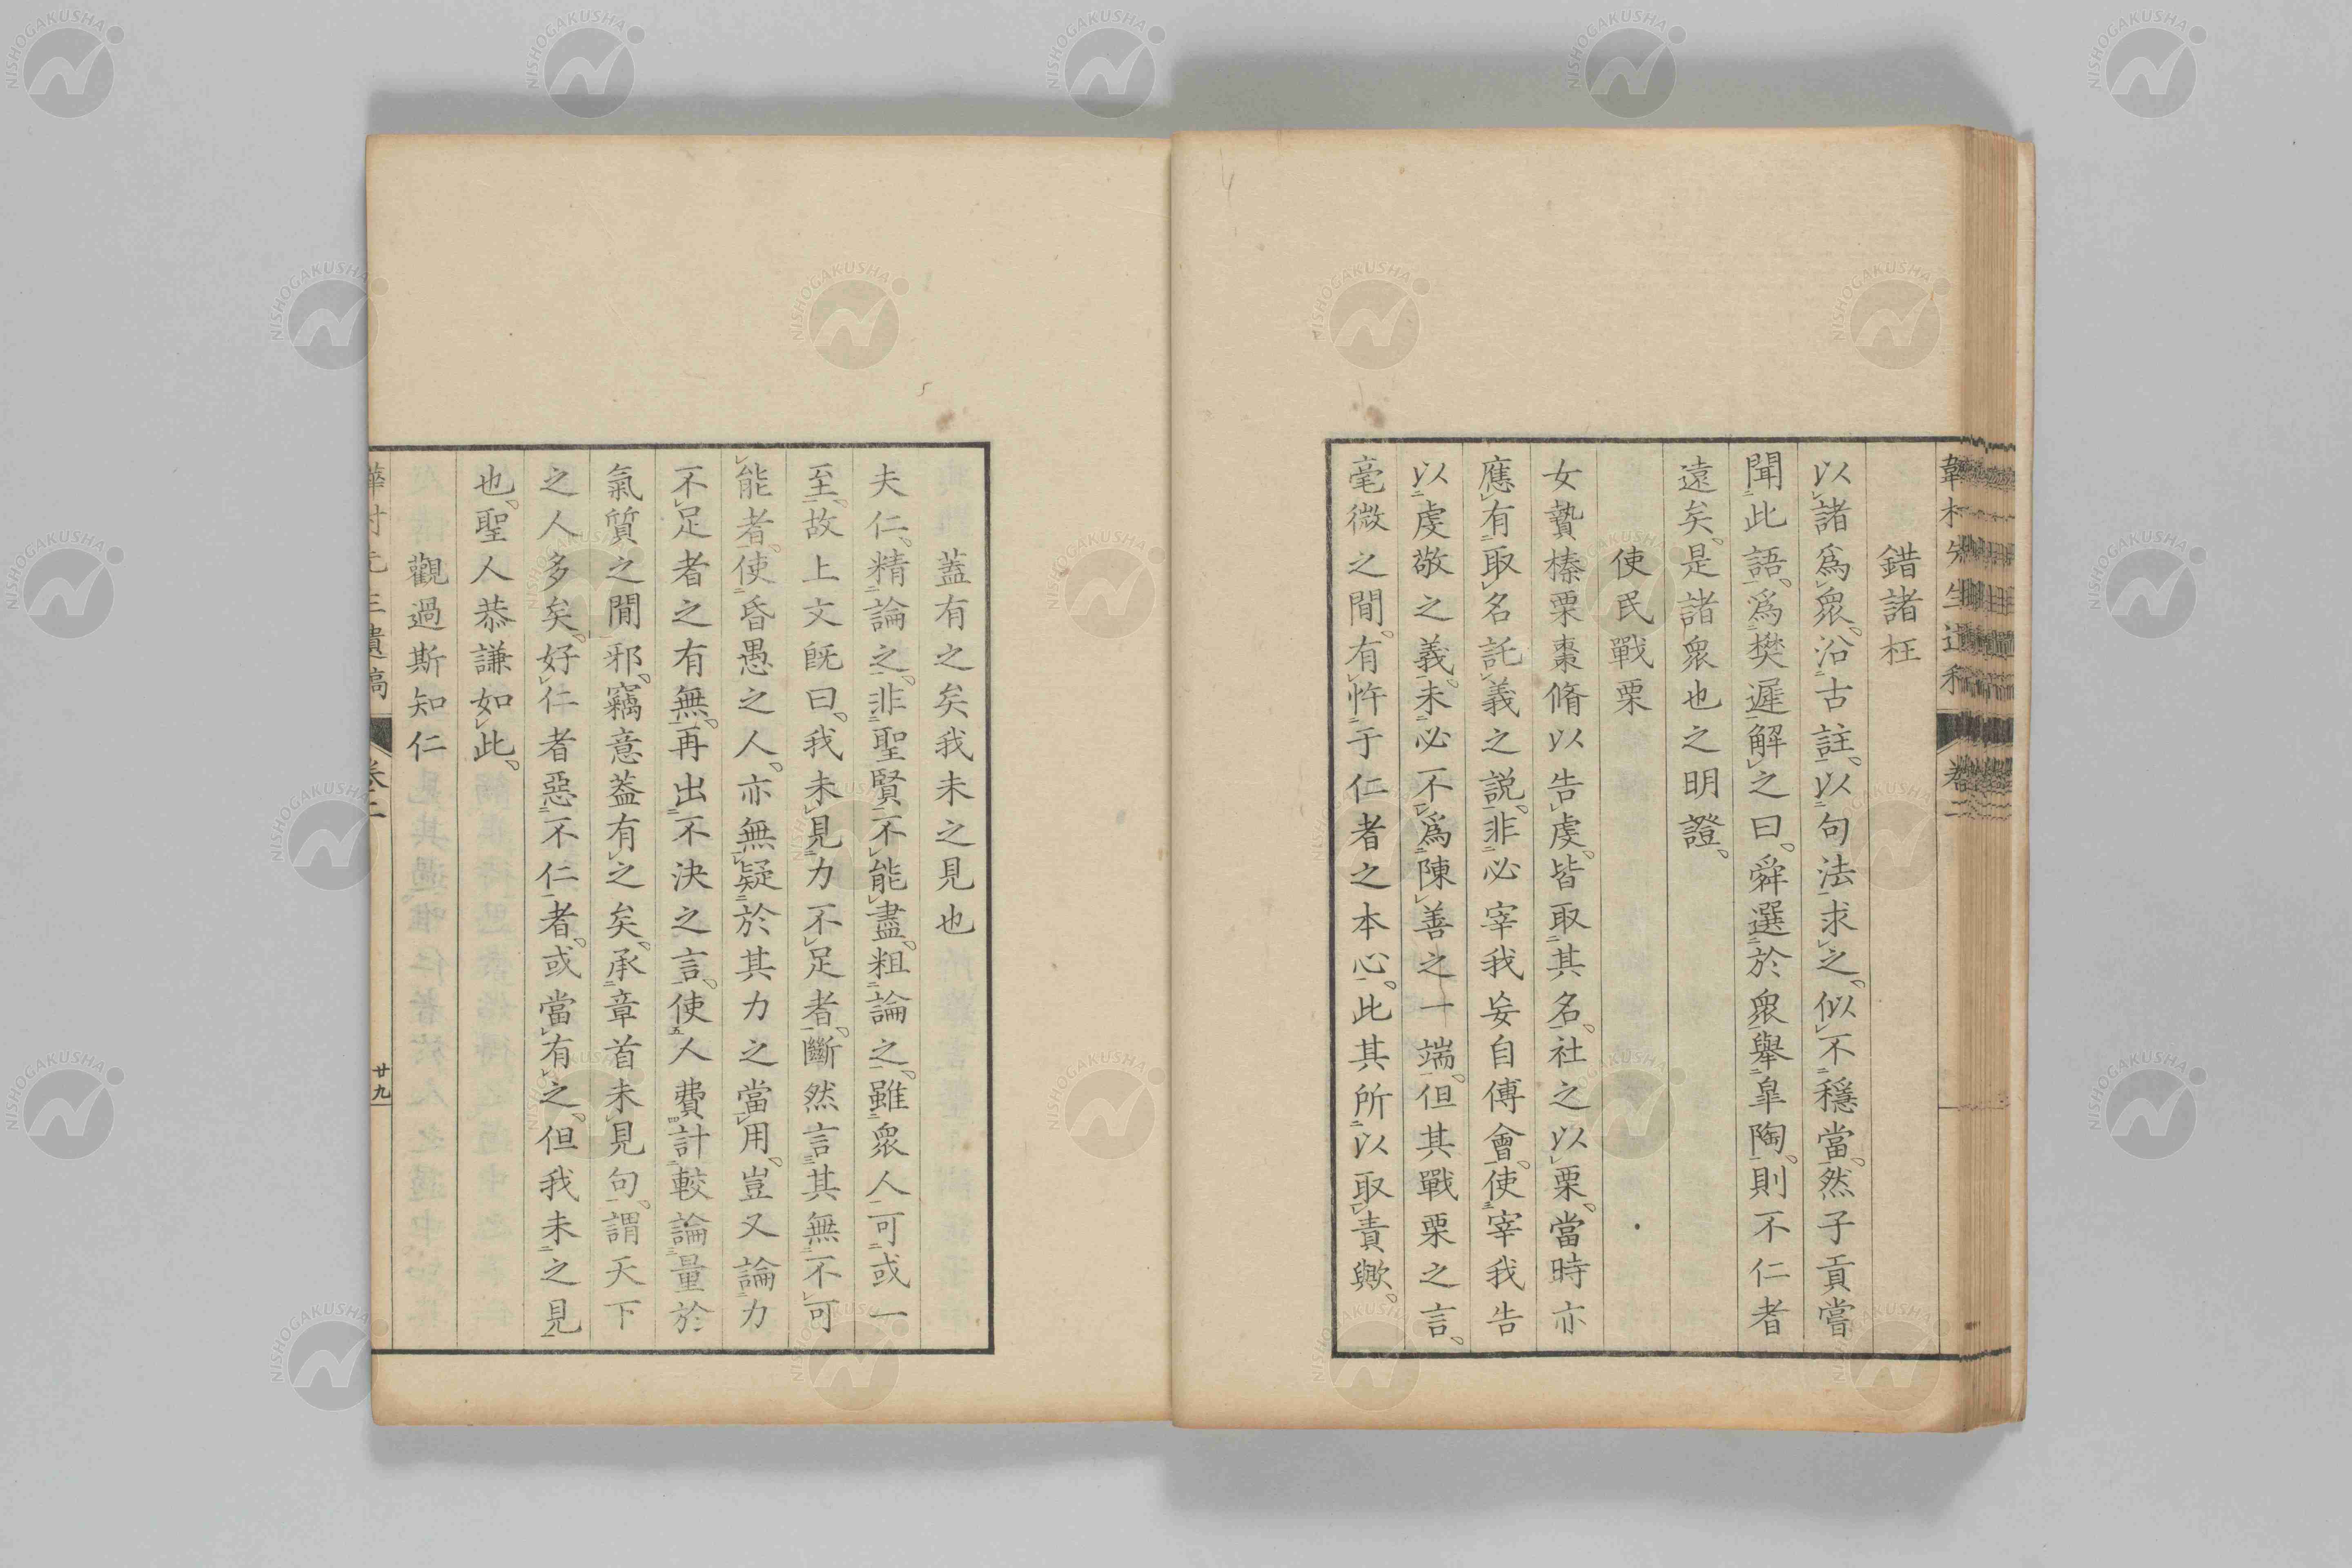 錯諸枉
以諸爲衆。沿古註。以句法求之。似不穩當。然子貢嘗
聞此語。爲樊遲解之曰。舜選於衆舉皐陶。則不仁者
遠矣。是諸衆也之明證。
使民戰栗
女贄榛栗棗脩以告虔。皆取其名。社之以栗。當時亦
應有取名託義之説。非必宰我妄自傅會。使宰我告
以虔敬之義。未必不爲陳善之一端。但其戰栗之言。
毫微之閒。有忤于仁者之本心。此其所以取責歟。
蓋有之矣我未之見也
夫仁。精論之。非聖賢不能盡。粗論之。雖衆人可或一
至。故上文既曰。我未見力不足者。斷然言其無不可
能者。使昏愚之人。亦無疑於其力之當用。豈又論力
不足者之有無。再出不決之言。使人費計較論量於
氣質之閒邪。竊意蓋有之矣。承章首未見句。謂天下
之人多矣。好仁者惡不仁者。或當有之。但我未之見
也。聖人恭謙如此。
觀過斯知仁
卷二
廿九
NISHOGAKUSHA